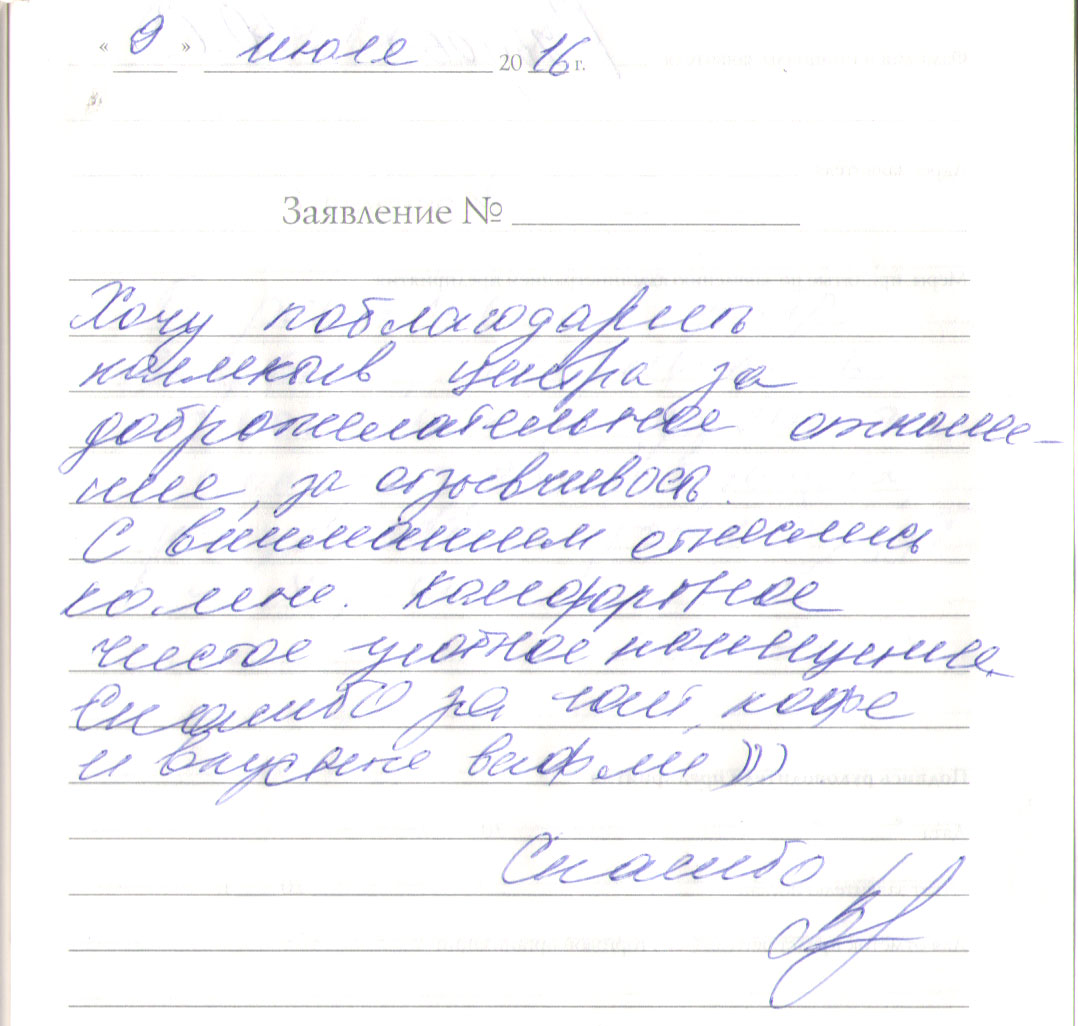 « 9 » июля 2016 г.
Заявление №
Хочу поблагодарить
коллектив центра за
доброжелательное отноше-
ние, за отзывчивость.
С вниманием отнеслись
ко мне. Комфортное
чистое уютное помещение.
Спасибо за чай, кофе
и вкусные вафли )))
Спасибо